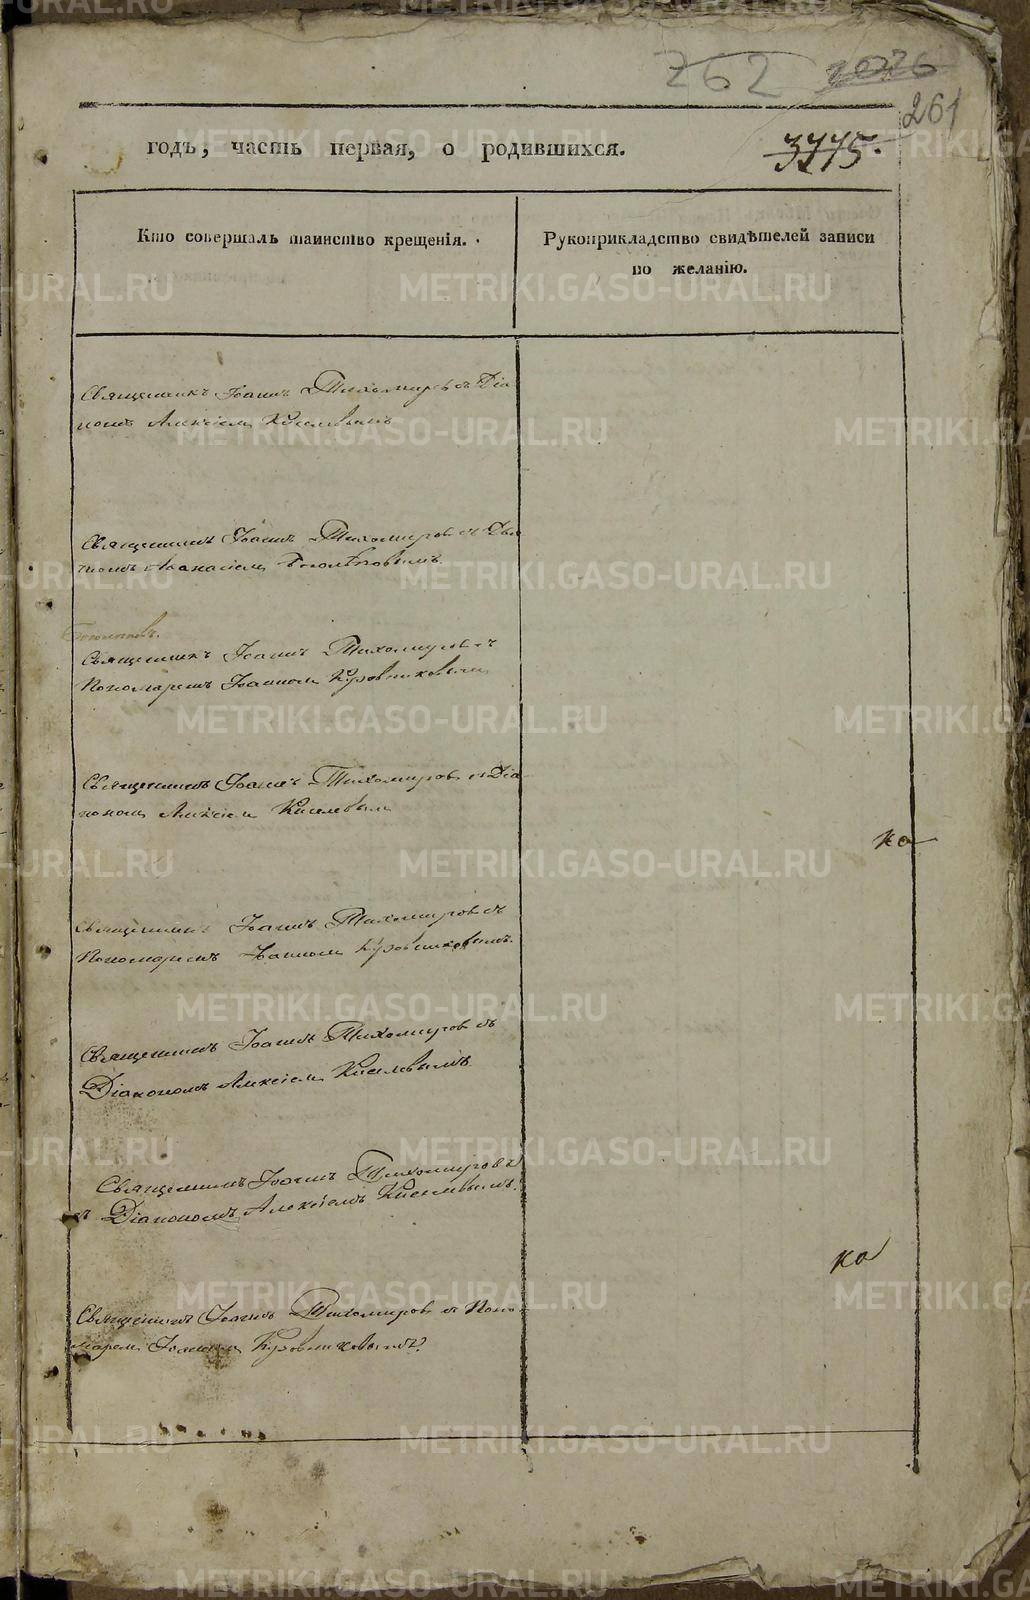 262
261
3775.
годъ, часть первая, о родившихся.
Кто совершалъ таинство крещенія.
Рукоприкладство свидѣтелей записи
по желанію.
Священникъ Іоаннъ Тихомировъ съ Діа
кономъ Алексіемъ Киселевымъ
Священникъ Іоаннъ Тихомировъ съ
Священникъ Іоаннъ Тихомировъ съ
Пономаремъ Іоанномъ Куровниковымъ
Священникъ Іоаннъ Тихомировъ съ Діа
кономъ Алексіемъ Киселевымъ
ка
Священникъ Іоаннъ Тихомировъ съ
Пономаремъ Іоанномъ Куровниковымъ.
Священникъ Іоаннъ Тихомировъ съ
Діакономъ Алексіемъ Киселевымъ
Священникъ Іоаннъ Тихомировъ
съ Діакономъ Алексіемъ Киселевымъ.
ка
Священникъ Іоаннъ Тихомировъ съ Поно
маремъ Іоанномъ Куровниковымъ
METRIKI.GASO-URAL.RU